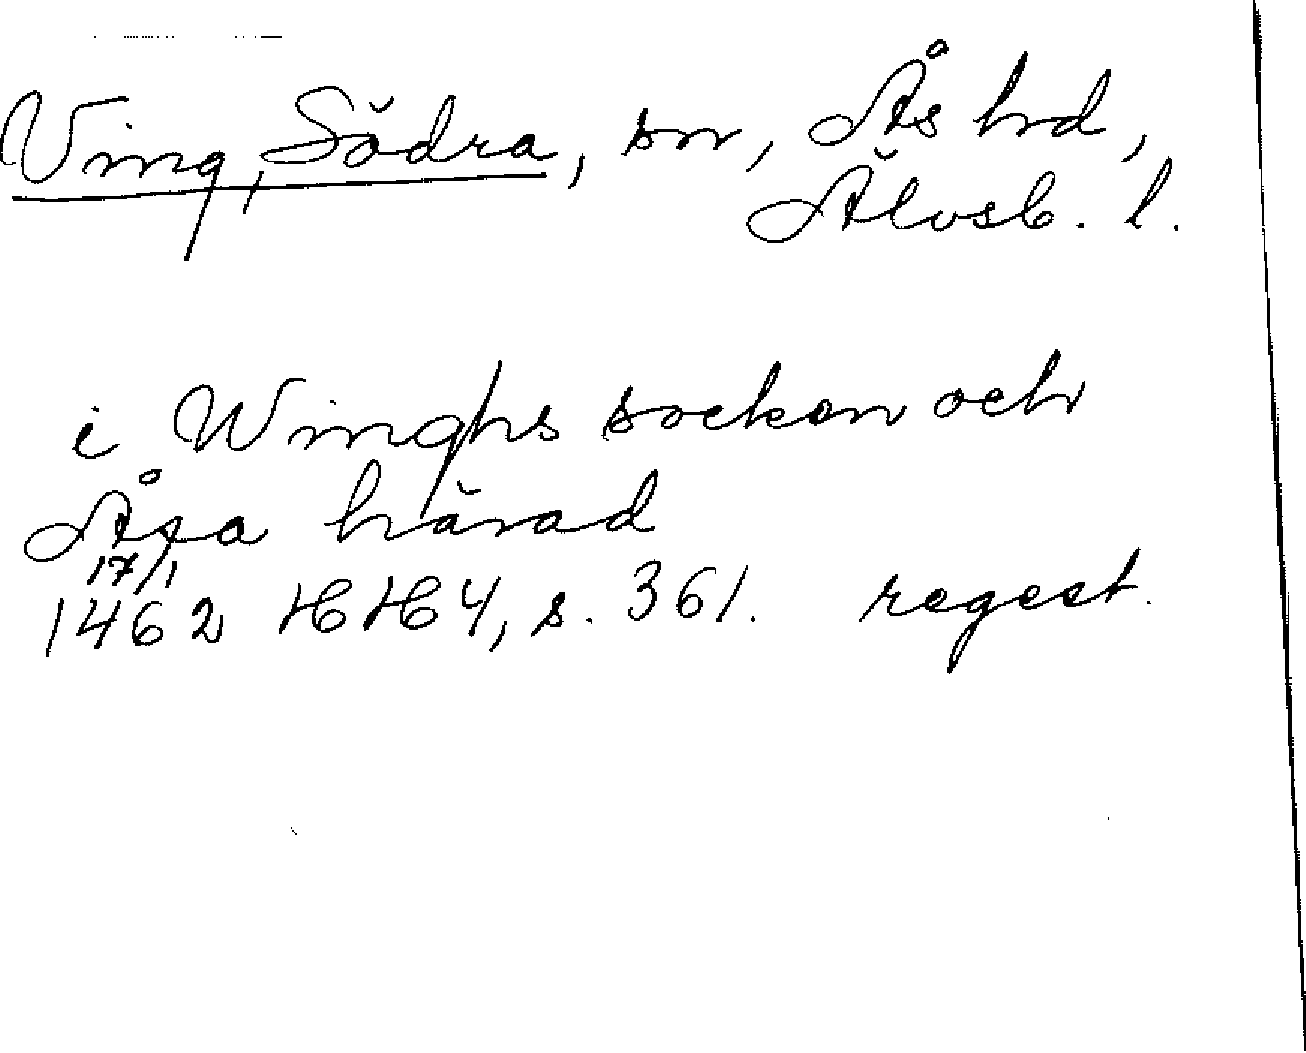 Ving, Södra, sn, Ås hrd,
Älvsb. l.
i Winghs socken och
Åsa härad
17/1
1462 HH 4, s. 361. regest.